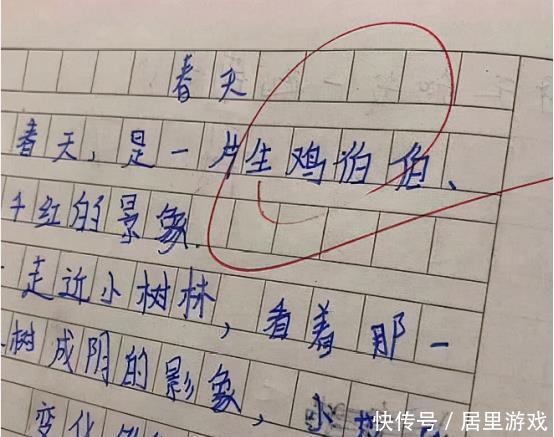 春天
春天,是一片生鸡伯伯、
千红的景象.
走近小树林,看着那一
树成阴的影象,小
变化
快传号 / 居里游戏